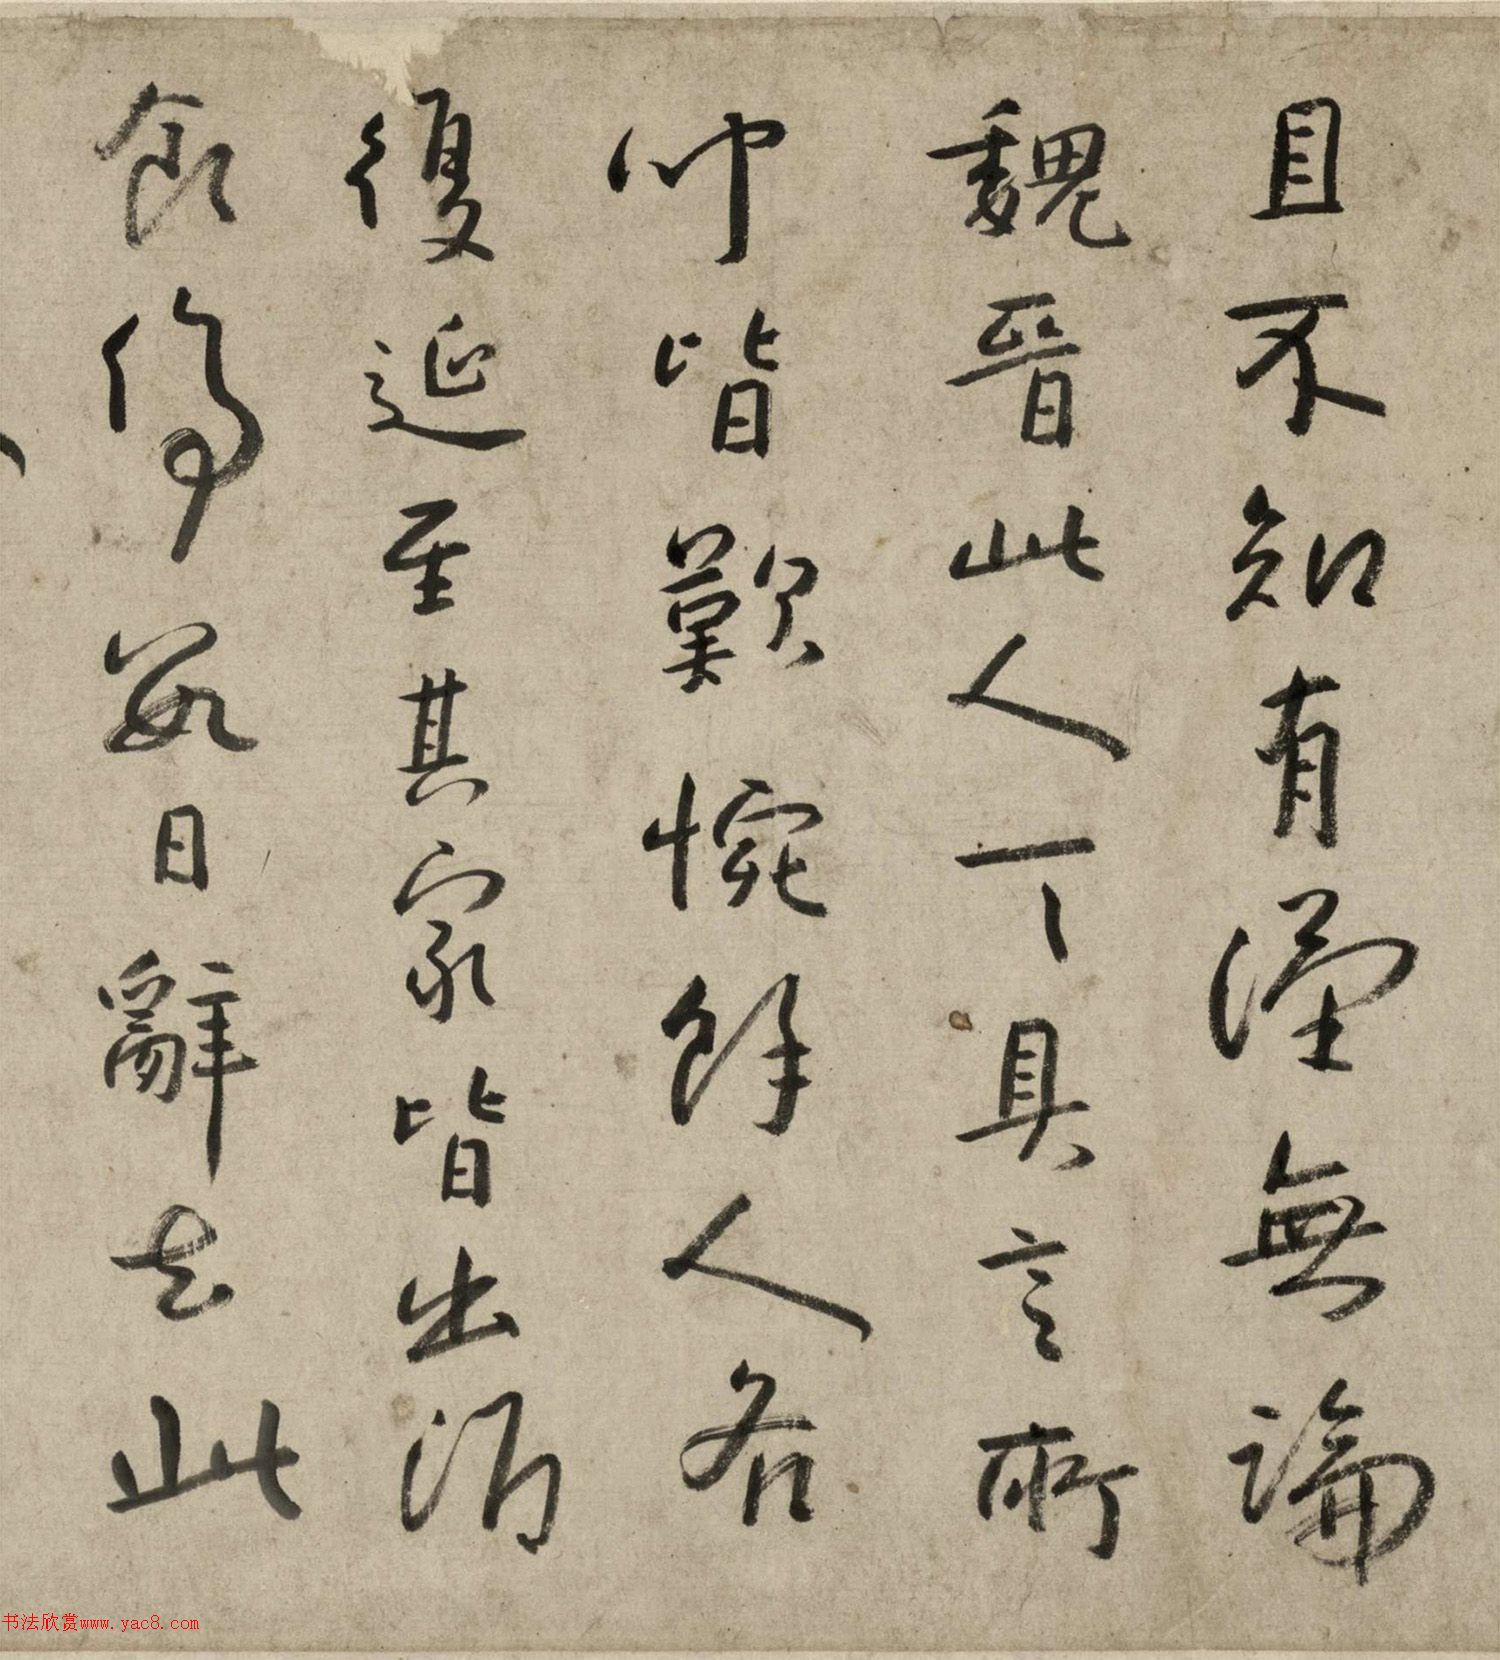 且不知有漢無論
魏晉此人一一具言所
聞皆歎惋餘人各
復延至其家皆出酒
食停數日辭去此
书法欣赏www.yac8.com